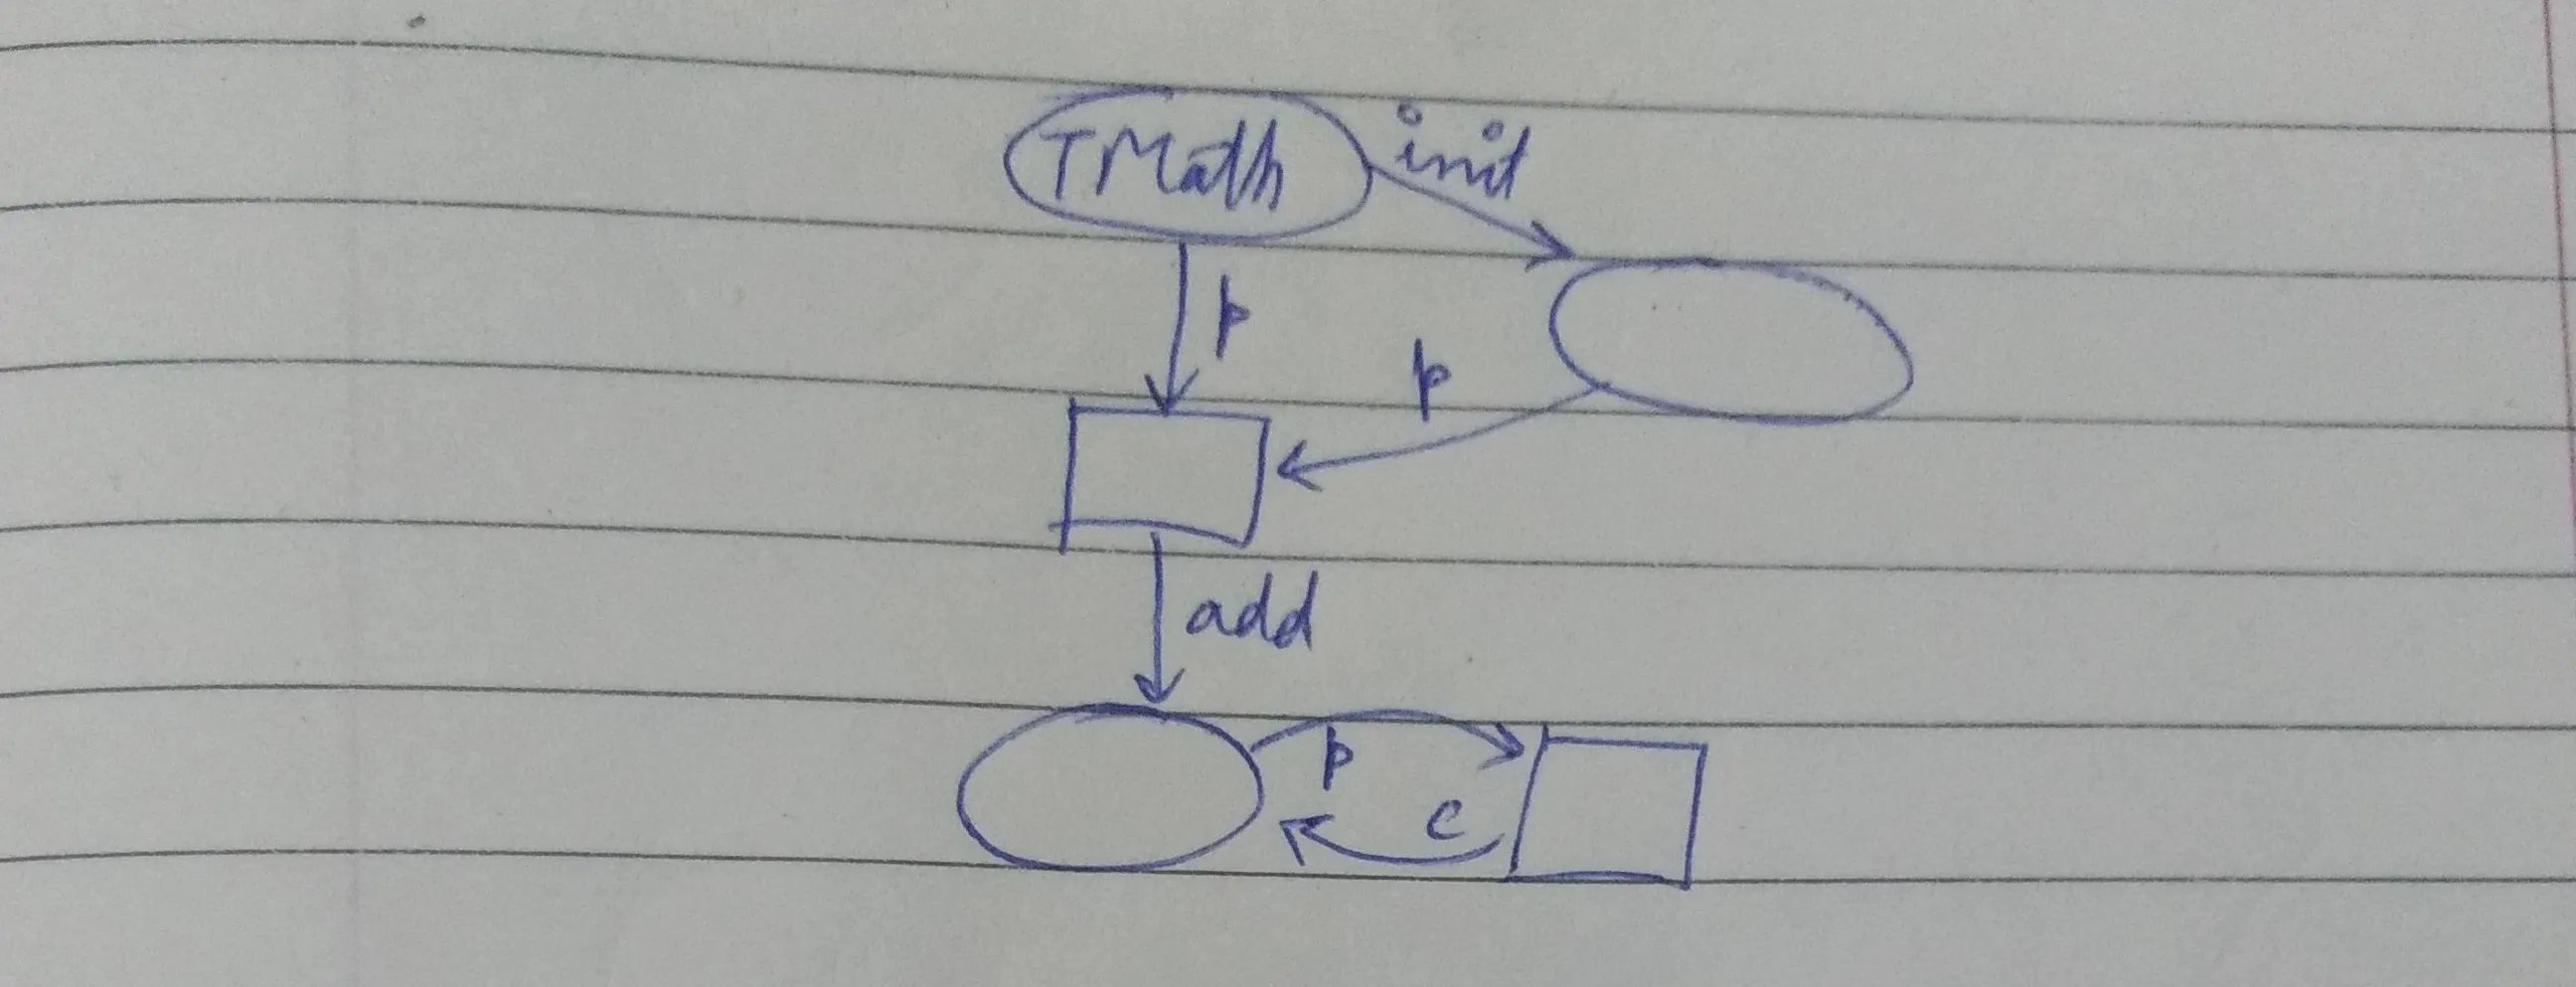 TMath init
p
p
add
p
c